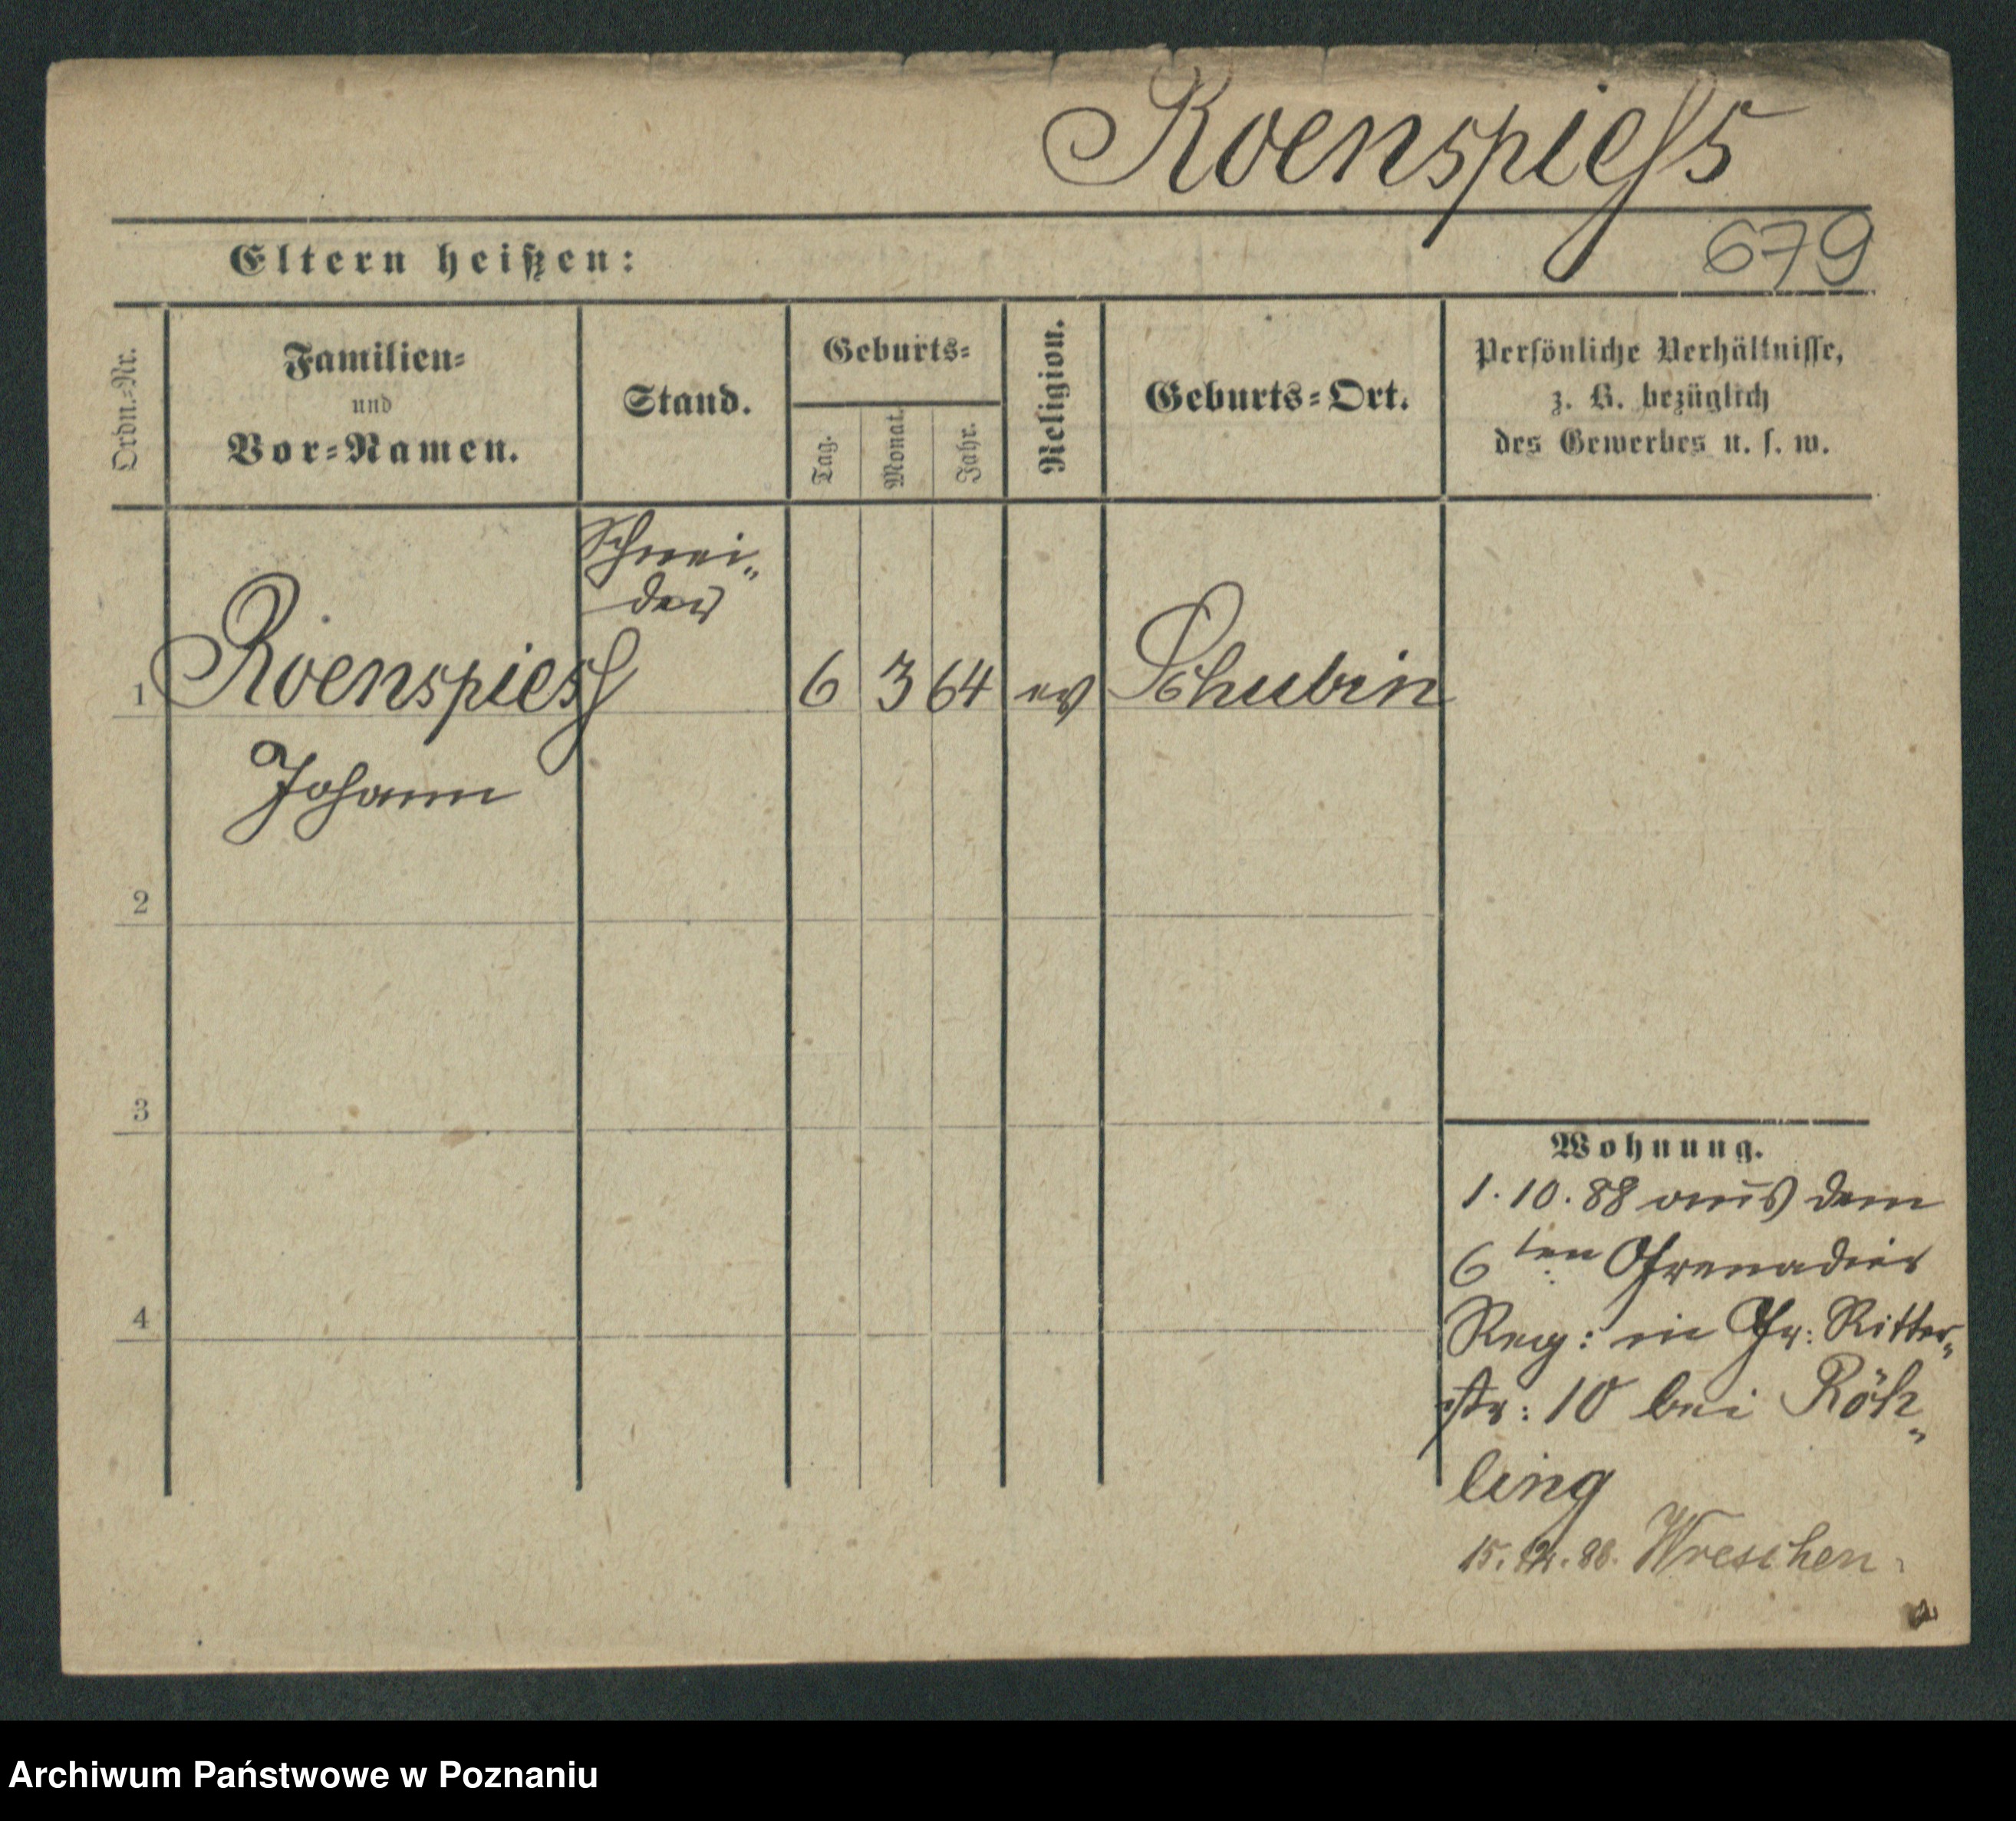 Roenspiess
Eltern heißen:
679
Ordn.-Nr.
Familien-
und
Vor-Namen.
Stand.
Geburts-
Tag.
Monat.
Jahr.
Religion.
Geburts-Ort.
Persönliche Verhältnisse,
z. B. bezüglich
des Gewerbes u. s. w.
Schnei-
der
1 Roenspiess 6 3 64 ev Schubin
Johann
2
3
4
Wohnung.
1.10.88 aus dem
6ten Grenadier
Reg: in Gr: Ritter-
str: 10 bei Röh-
ling
15. 88. Wreschen.
Archiwum Państwowe w Poznaniu